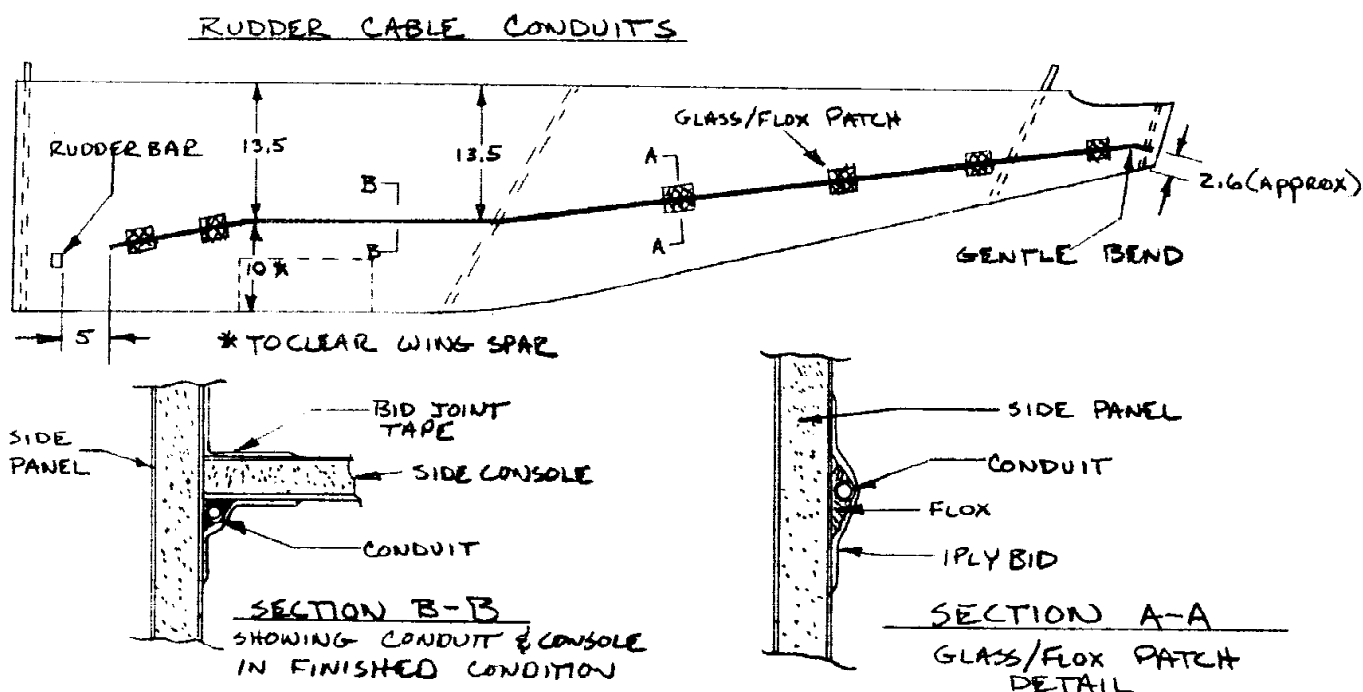 RUDDER CABLE CONDUITS
RUDDER BAR
13.5
13.5
GLASS/FLOX PATCH
A
A
B
B
2.6 (APPROX)
GENTLE BEND
10*
5
* TO CLEAR WING SPAR
BID JOINT
TAPE
SIDE
PANEL
SIDE CONSOLE
CONDUIT
SECTION B-B
SHOWING CONDUIT & CONSOLE
IN FINISHED CONDITION
SIDE PANEL
CONDUIT
FLOX
1 PLY BID
SECTION A-A
GLASS/FLOX PATCH
DETAIL